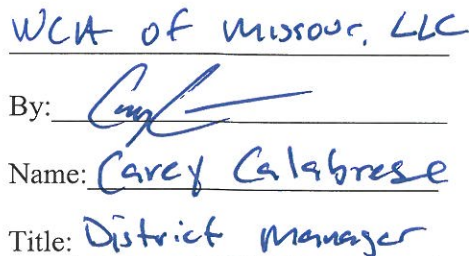 WCA of Missouri, LLC
By:
Name: Carey Calabrese
Title: District Manager